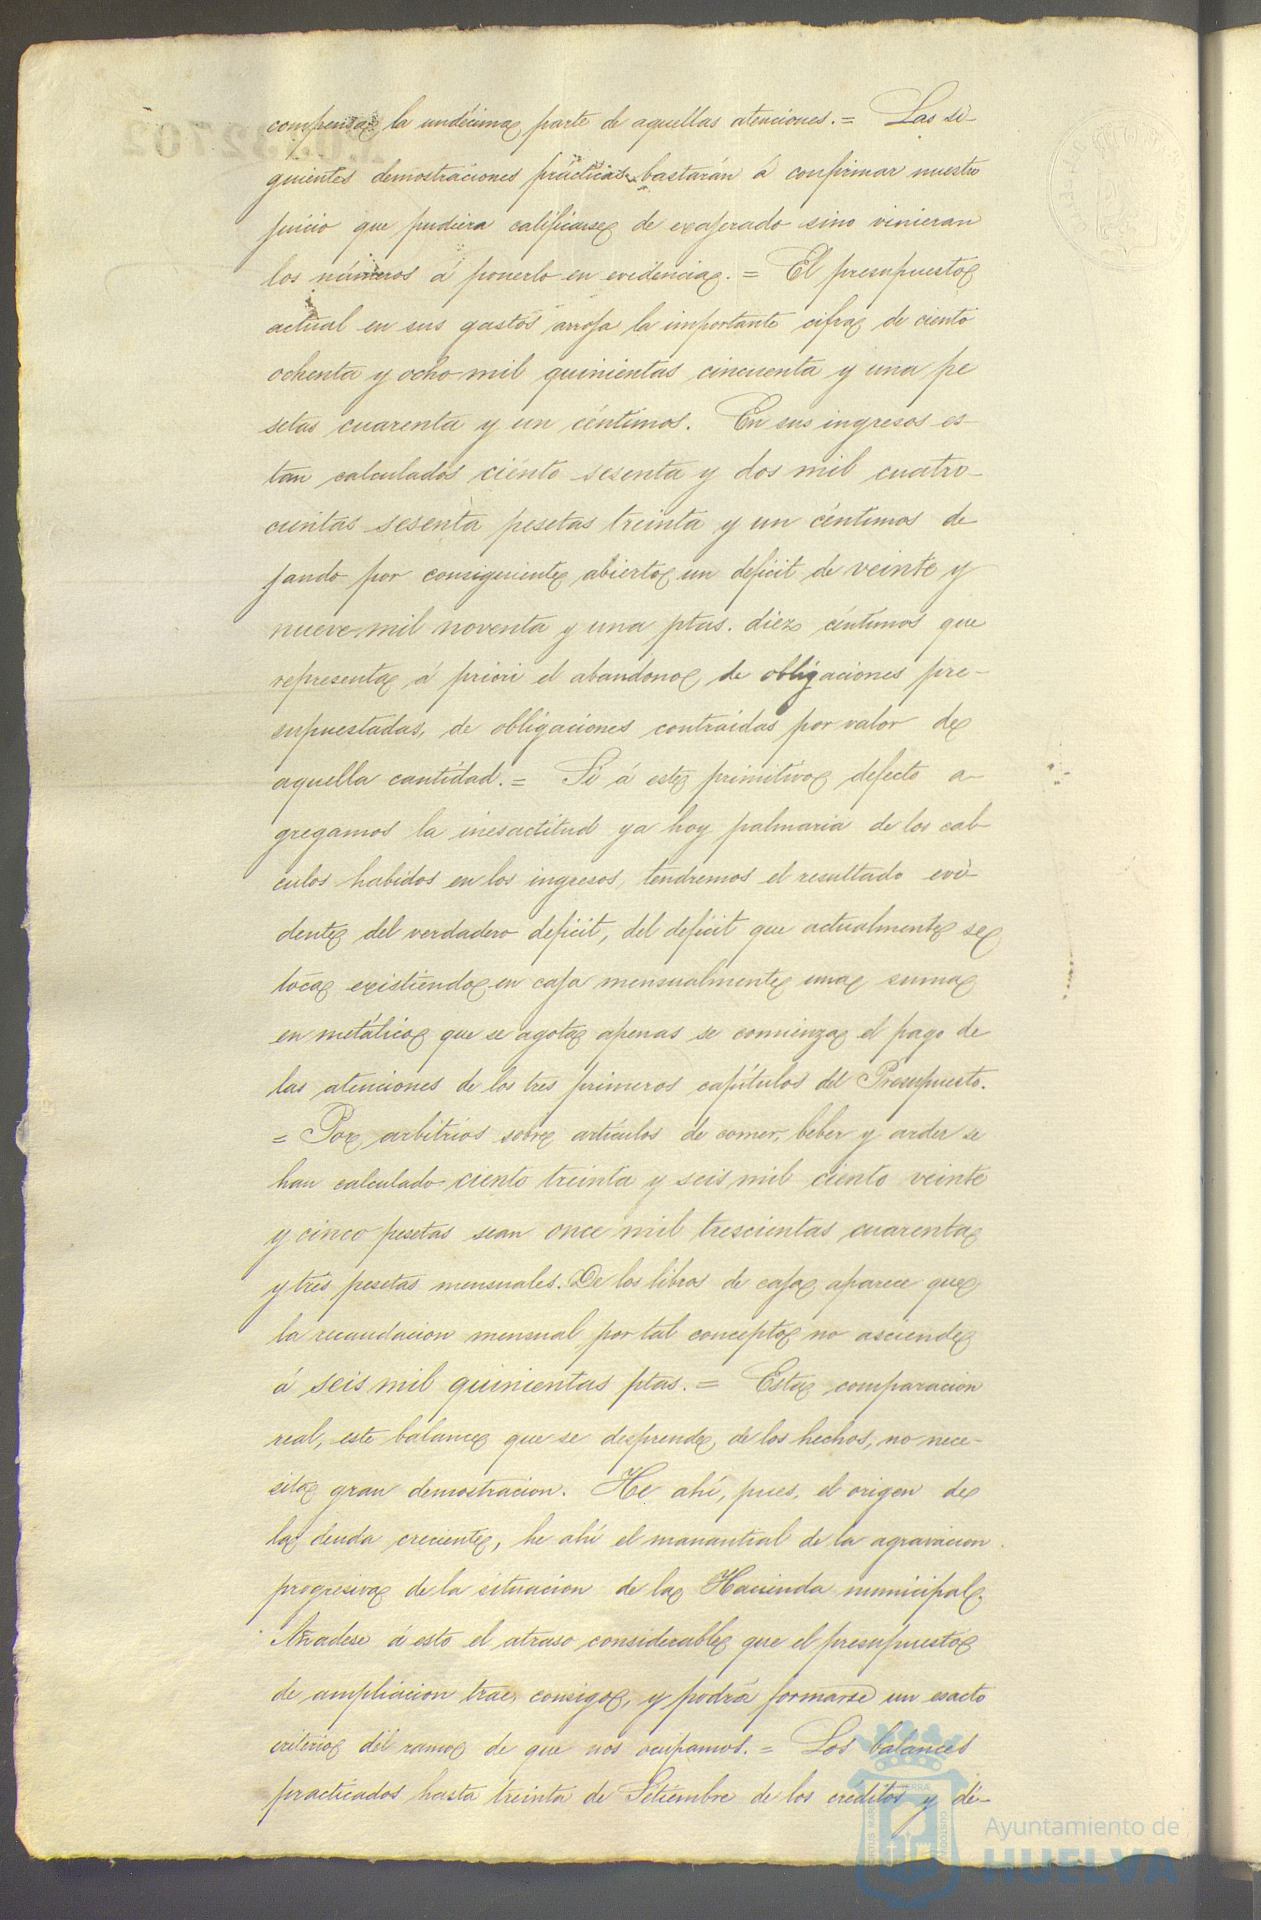 compensa la undécima parte de aquellas atenciones. = Las si-
guientes demostraciones prácticas bastarán á confirmar nuestro
juicio que pudiera calificarse de exajerado sino vinieran
los números á ponerlo en evidencia. = El presupuesto
actual en sus gastos arroja la importante cifra de ciento
ochenta y ocho mil quinientas cincuenta y una pe
setas cuarenta y un céntimos. En sus ingresos es-
tan calculados ciento sesenta y dos mil cuatro-
cientas sesenta pesetas treinta y un céntimos de
jando por consiguiente abierto un deficit de veinte y
nueve mil noventa y una ptas. diez céntimos que
representa á priori el abandono de obligaciones pre-
supuestadas, de obligaciones contraidas por valor de
aquella cantidad. = Si á este primitivo defecto a-
gregamos la inesactitud ya hoy palmaria de los cál-
culos habidos en los ingresos, tendremos el resultado evi-
dente del verdadero deficit, del deficit que actualmente se
toca existiendo en caja mensualmente una suma
en metálico que se agota apenas se comienza el pago de
las atenciones de los tres primeros capítulos del Presupuesto.
= Por arbitrios sobre artículos de comer, beber y arder se
han calculado ciento treinta y seis mil ciento veinte
y cinco pesetas sean once mil trescientas cuarenta
y tres pesetas mensuales. De los libros de caja aparece que
la recaudacion mensual por tal concepto no asciende
á seis mil quinientas ptas. = Esta comparacion
real, este balance que se desprende, de los hechos, no nece-
sita gran demostracion. He ahí, pues, el origen de
la deuda creciente, he ahí el manantial de la agravacion
progresiva de la situacion de la Hacienda municipal.
Añadese á esto el atraso considerable que el presupuesto
de ampliacion trae consigo, y podrá formarse un esacto
criterio del ramo de que nos ocupamos. = Los balances
practicados hasta treinta de Setiembre de los créditos y dé-
Ayuntamiento de
HUELVA